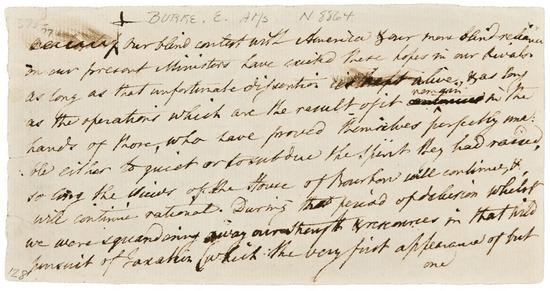 BURKE. E. AMs N 8864
our blind contest with America & our more blind reliance
on our present Ministers have excited these hopes in our Rivals
as long as that unfortunate dissention is kept alive, & as long
as the operations which are the result of it remain in the
hands of those, who have proved themselves perfectly una-
ble either to quiet or to subdue the spirit they had raised,
so long the views of the House of Bourbon will continue, &
will continue rational. During that period of delusion whilst
we were squandering away our strength & resources in that wild
pursuit of Taxation (which the very first appearance of but
one
128